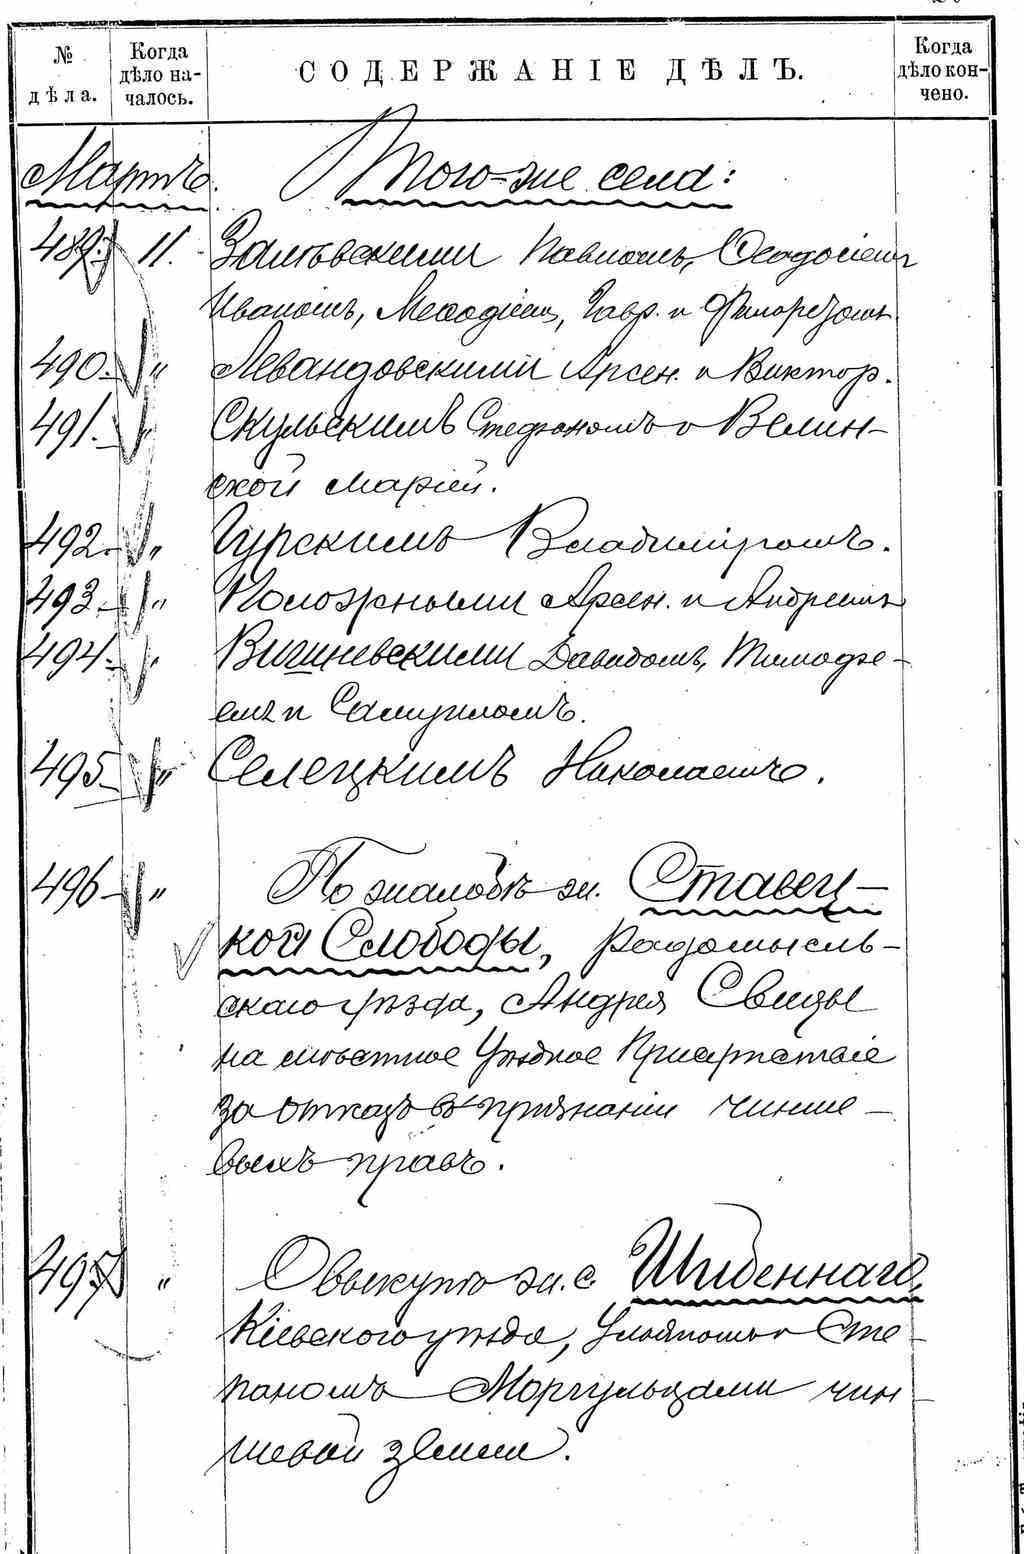 № дѣла.
Когда дѣло началось.
СОДЕРЖАНІЕ ДѢЛЪ.
Когда дѣло кончено.
Мартъ. Того-же села:
489. 11. Залѣвскими Павломъ, Ѳеодосіемъ
Иваномъ, Меѳодіемъ, Гавр. и Филаретомъ.
490. " Левандовскими Арсен. и Виктор.
491. " Скульскимъ Стефаномъ и Велин-
ской Маріей.
492. " Гурскимъ Владиміромъ.
493. " Положными Арсен. и Андреемъ
494. " Вишневскими Давидомъ, Тимофе-
емъ и Самуиломъ.
495 " Селецкимъ Николаемъ.
496 " По жалобѣ ж. Ставец-
кой Слободы, Радомысль-
скаго уѣзда, Андрея Свищы
на мѣстное Уѣздное Присутствіе
за отказъ въ признаніи чинше-
выхъ правъ.
497 " О выкупѣ ж. с. Шибеннаго,
Кіевскаго уѣзда, и Сте-
паномъ Моргульцами чин-
шевой земли.